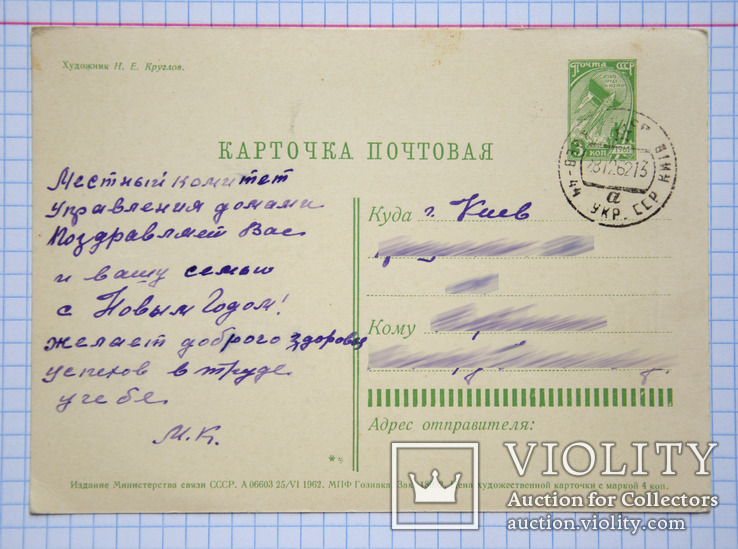 Художник Н. Е. Круглов.
ПОЧТА СССР
КОП
1961
КАРТОЧКА ПОЧТОВАЯ
КИЇВ
УКР. ССР
а
Местный комитет
Управления домами
Поздравляет Вас
и вашу семью
с Новым Годом!
желает доброго здоровья
успехов в труде
учебе
М.К.
Куда г. Киев
Кому
Адрес отправителя:
Издание Министерства связи СССР. А 06603 25/VI 1962. МПФ Гознака. Зак. Цена художественной карточки с маркой 4 коп.
VIOLITY
Auction for Collectors
www.auction.violity.com